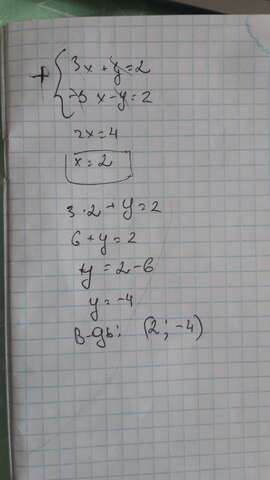 + { 3x + y = 2
- x - y = 2
2x = 4
x = 2
3 · 2 + y = 2
6 + y = 2
y = 2 - 6
y = -4
В-дь: (2; -4)